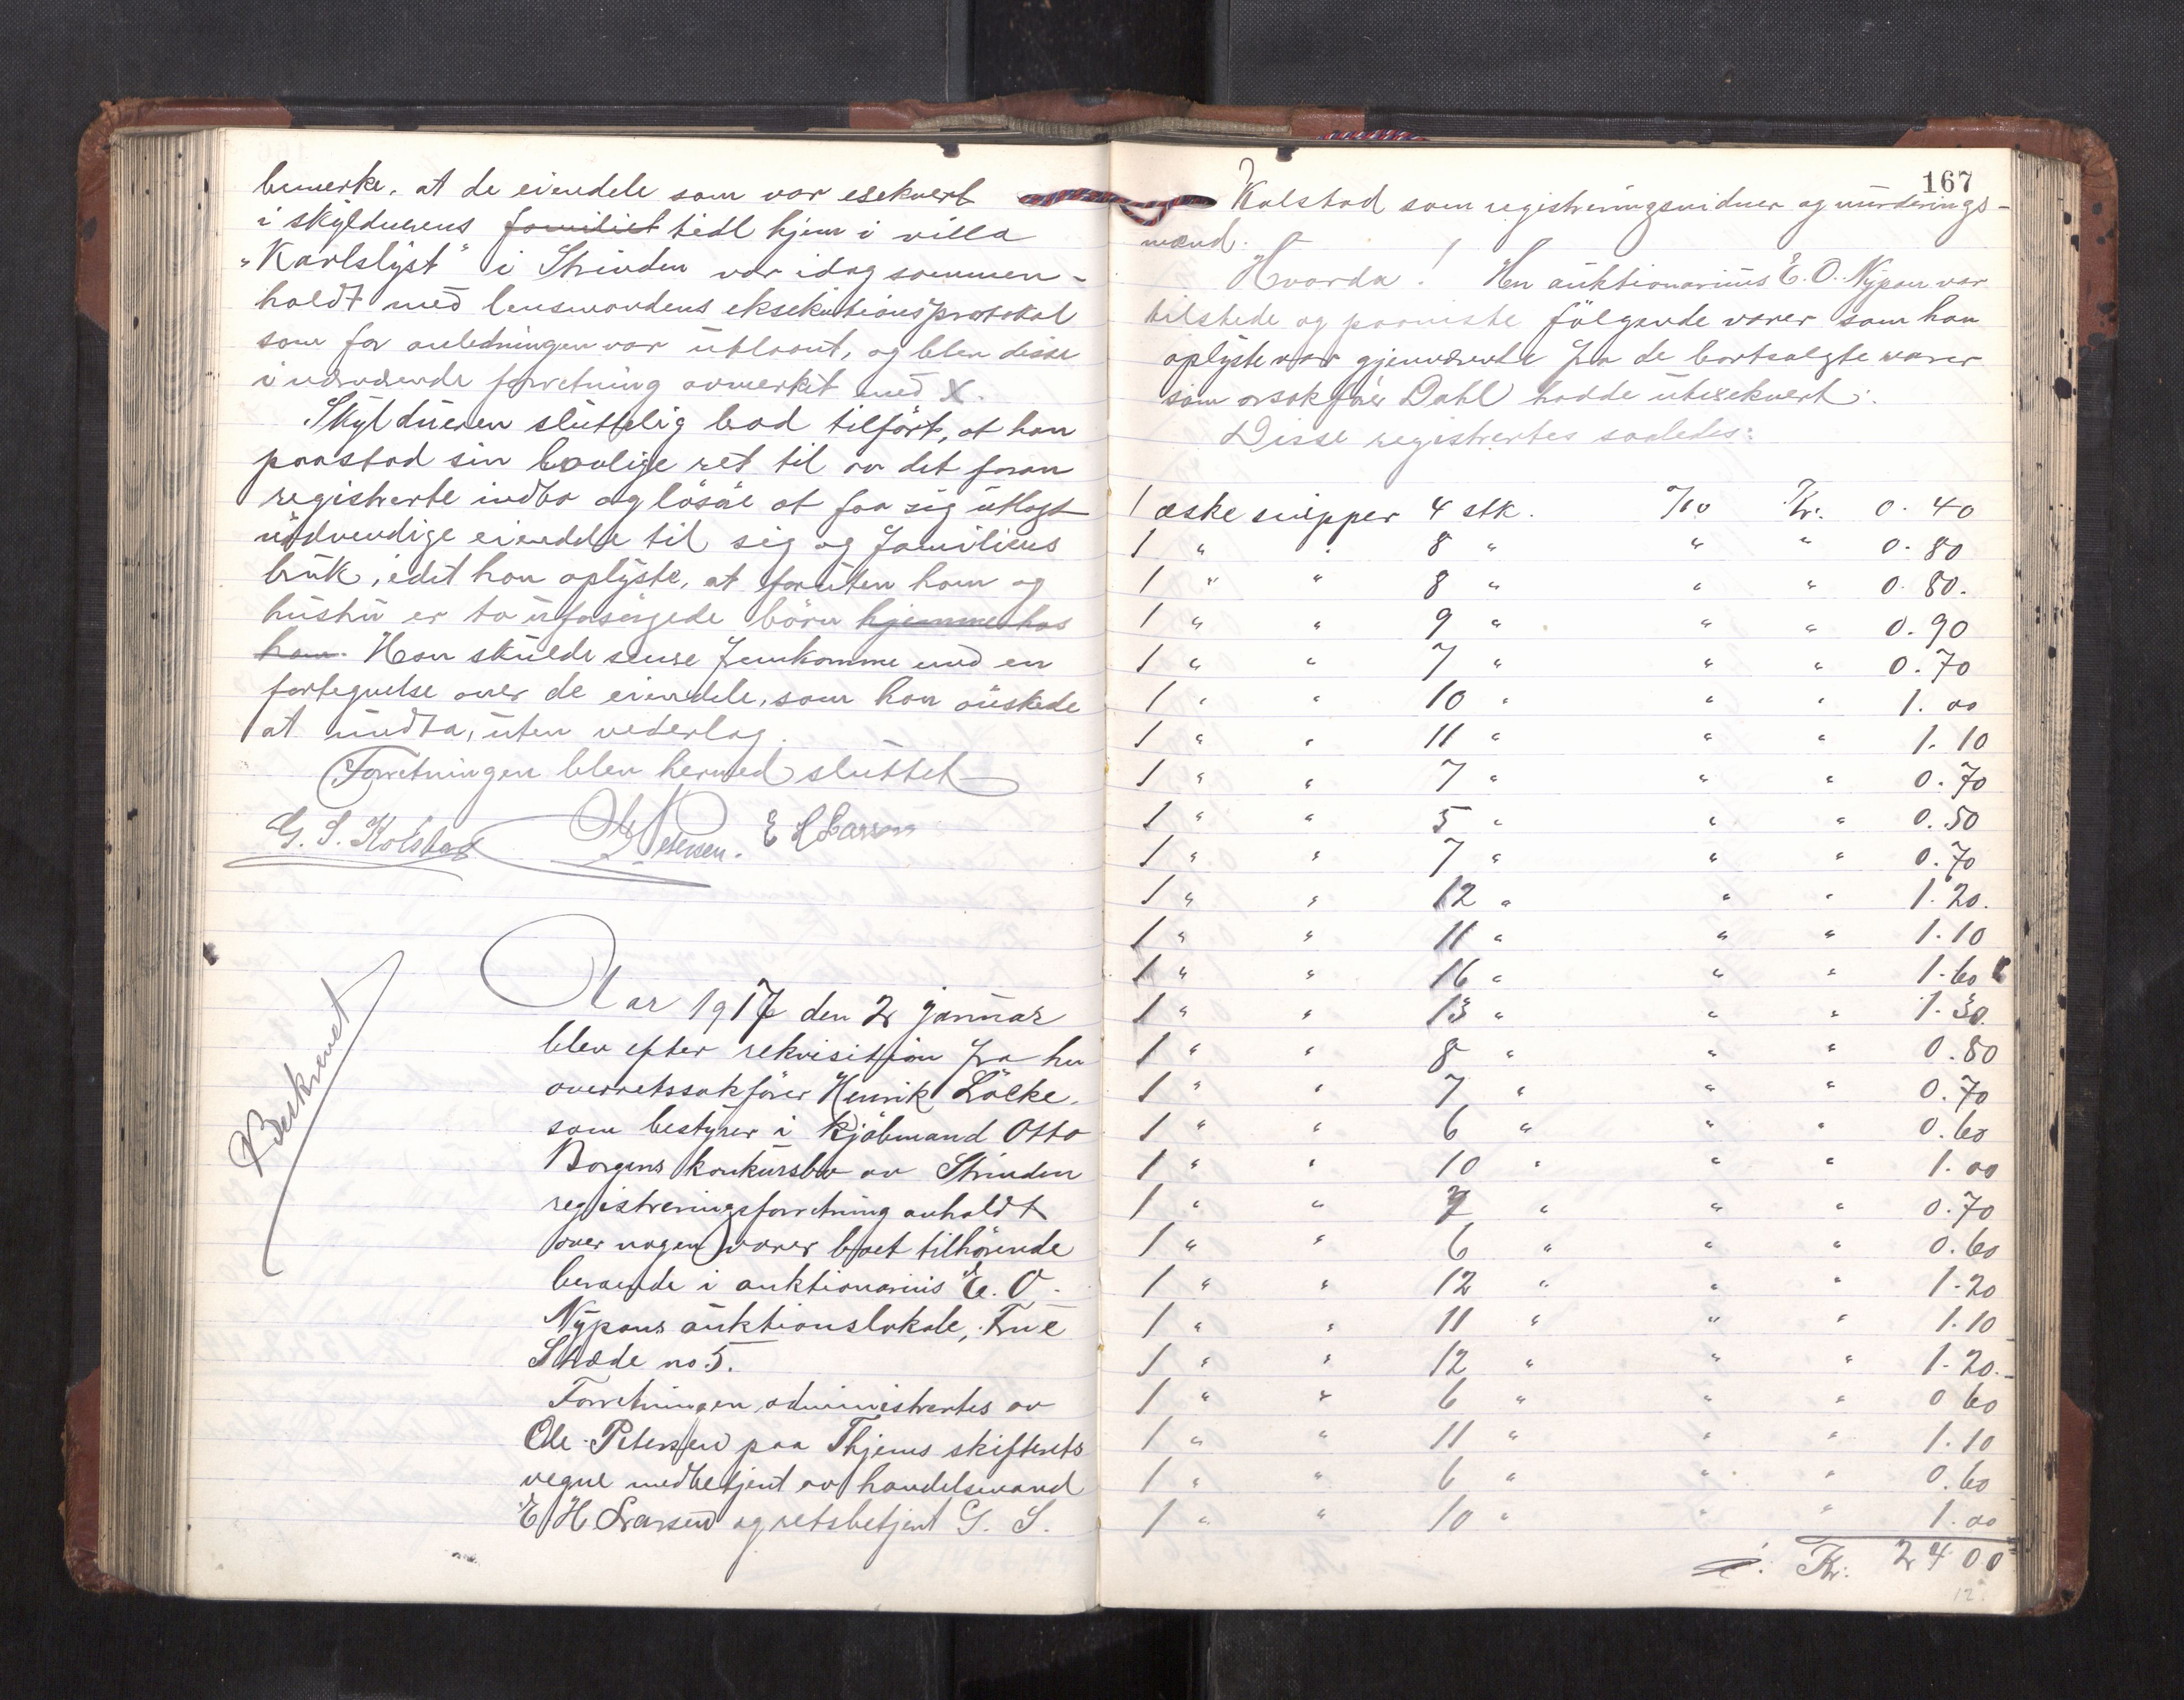 bemerke, at de eiendele som var esekvert
i skyldnerens familiet tidl hjem i villa
"Karlslyst" i Strinden var idag sammen-
holdt med lensmandens eksekutionsprotokol
som for anledningen var utlaant, og blev disse
i nærværende forretning avmerket med X.
Skyldneren sluttelig bad tilført, at han
paastod sin lovlige ret til av det foran
registrerte indbo og løsøre at faa sig utlagt
nødvendige eiendele til sig og familiens
bruk, idet han oplyste, at foruten ham og
hustru er to uforsørgede børn hjemme hos
ham. Han skulde senere fremkomme med en
fortegnelse over de eiendele, som han ønskede
at undta, uten vederlag.
Forretningen blev hermed sluttet
G. S. Kolstad Ole Petersen. E H Larsen
Beskrevet
Aar 1917 den 2 januar
blev efter rekvisition fra hr
overretssakfører Henrik Løcke
som bestyrer i kjøbmand Otto
Borgens konkursbo av Strinden
registreringsforretning avholdt
over nogen varer boet tilhørende
beroende i auktionarius E. O.
Nypans auktionslokale, Frue
Stræde no 5.
Forretningen administrertes av
Ole Petersen paa Thjems skifterets
vegne medbetjent av handelsmand
E H Larsen og retsbetjent G. S.
167
Kolstad som registreringsvidner og vurderings-
mænd.
Hvorda! Hr auktionarius E. O. Nypan var
tilstede og paaviste følgende varer som han
oplyste var gjenværende fra de bortsolgte varer
som orsakfører Dahl hadde utesekvert:
Disse registrertes saaledes:
1 æske snipper 4 stk. 7/10 Kr. 0.40
1 " " 8 " " " 0.80
1 " " 8 " " " 0.80.
1 " " 9 " " " 0.90
1 " " 7 " " " 0.70
1 " " 10 " " " 1.00
1 " " 11 " " " 1.10
1 " " 7 " " " 0.70
1 " " 5 " " " 0.50
1 " " 7 " " " 0.70
1 " " 12 " " " 1.20.
1 " " 11 " " " 1.10
1 " " 16 " " " 1.60
1 " " 13 " " " 1.30.
1 " " 8 " " " 0.80
1 " " 7 " " " 0.70
1 " " 6 " " " 0.60
1 " " 10 " " " 1.00
1 " " 7 " " " 0.70
1 " " 6 " " " 0.60
1 " " 12 " " " 1.20
1 " " 11 " " " 1.10
1 " " 12 " " " 1.20.
1 " " 6 " " " 0 60
1 " " 11 " " " 1.10
1 " " 6 " " " 0.60
1 " " 10 " " " 1.00
Kr. 2400
12.